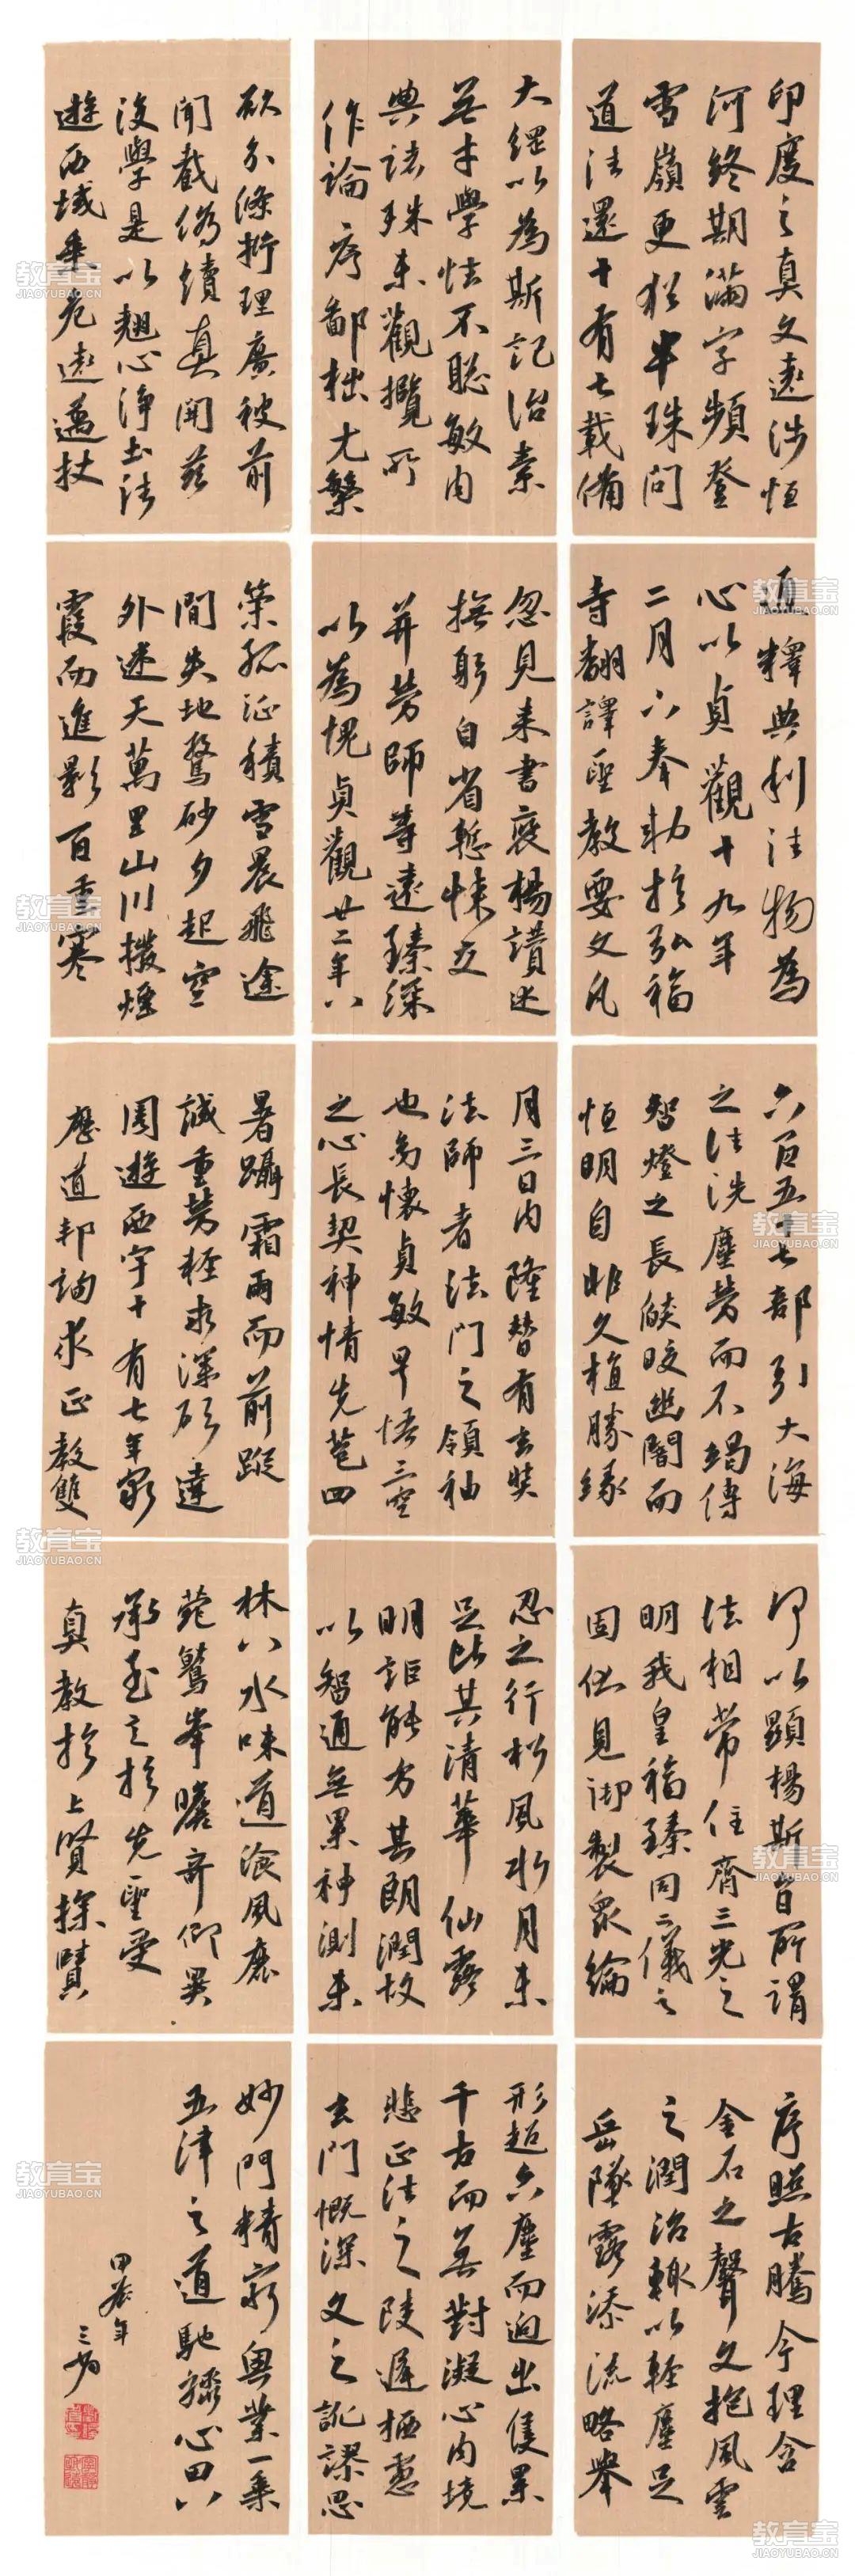 印度之真文遠涉恒
河終期滿字頻登
雪嶺更獲半珠問
道法還十有七載備
通釋典利法物為
心以貞觀十九年
二月六奉勅於弘福
寺翻譯聖教要文凡
六百五十七部引大海
之法洗塵勞而不竭傳
智燈之長焰皎幽闇而
恒明自非久植勝緣
何以顯楊斯旨所謂
法相常住齊三光之
明我皇福臻同二儀之
固伏見御製眾論
序照古騰今理含
金石之聲文抱風雲
之潤治輒以輕塵足
岳墜露添流略舉
大綱以為斯記治素
無才學性不聰敏內
典諸殊未觀攬所
作論序鄙拙尤繁
忽見來書褒楊讚述
撫躬自省慙悚交
并勞師等遠臻深
以為愧貞觀廿二年八
月三日內隆替有玄奘
法師者法門之領袖
也幼懷貞敏早悟三空
之心長契神情先苞四
忍之行松風水月未
足比其清華仙露
明詎能方其朗潤故
以智通無累神測未
形超六塵而迥出隻
千古而無對凝心內境
悲正法之陵遲栖慮
玄門慨深文之訛謬思
欲分條析理廣彼前
聞截偽續真開茲
後學是以翹心淨土法
遊西域乘危遠邁杖
策孤征積雪晨飛途
間失地驚砂夕起空
外迷天萬里山川撥煙
霞而進影百重寒
暑躡霜雨而前蹤
誠重勞輕求深願達
周遊西宇十有七年窮
歷道邦詢求正教雙
林八水味道湌風鹿
菀鷲峯瞻奇仰異
承至言於先聖受
真教於上賢探賾
妙門精窮奧業一乘
五律之道馳驟心田八
甲辰年
教育宝
JIAOYUBAO.CN